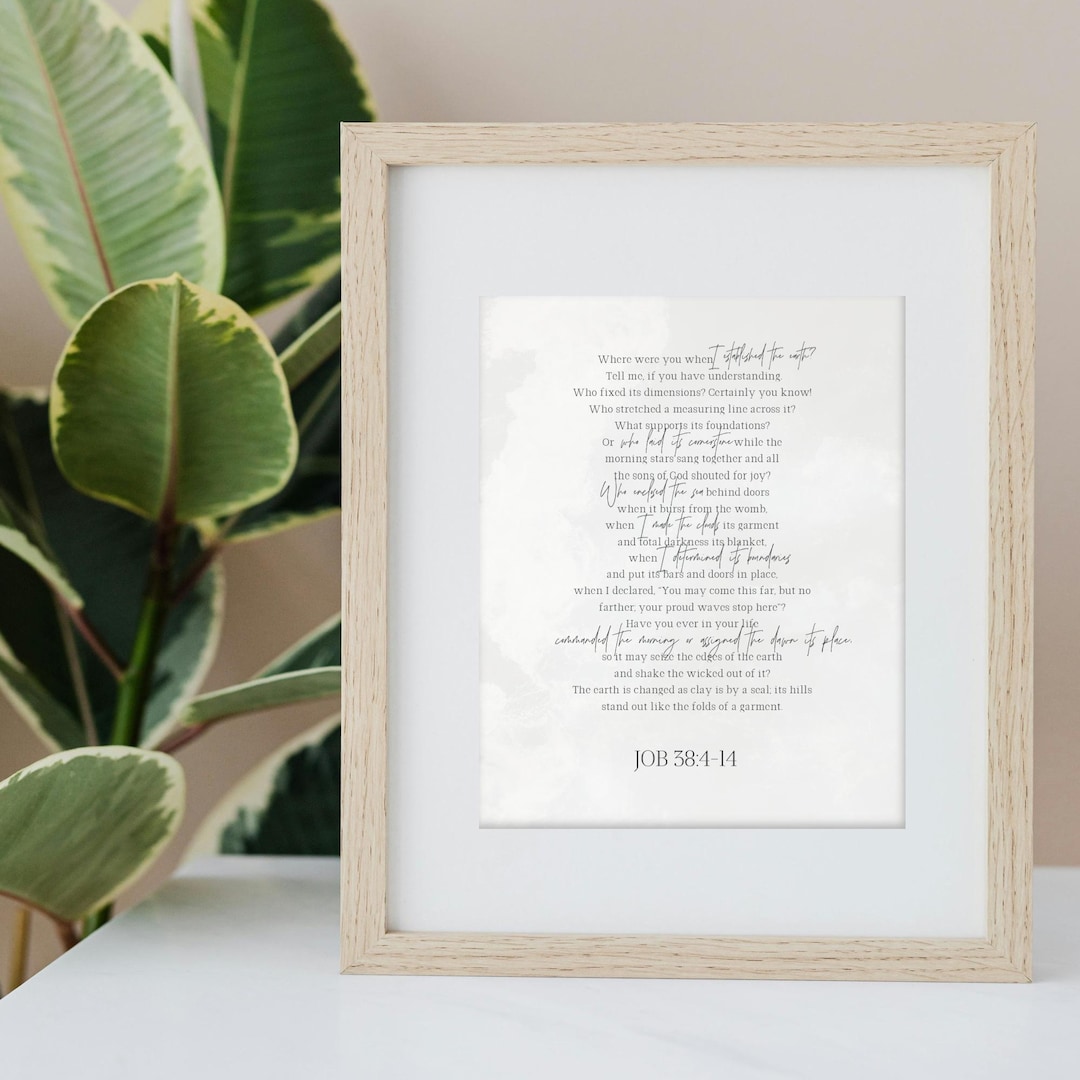 Where were you when I established the earth?
Tell me, if you have understanding.
Who fixed its dimensions? Certainly you know!
Who stretched a measuring line across it?
What supports its foundations?
Or who laid its cornerstone while the
morning stars sang together and all
the sons of God shouted for joy?
Who enclosed the sea behind doors
when it burst from the womb,
when I made the clouds its garment
and total darkness its blanket,
when I determined its boundaries
and put its bars and doors in place,
when I declared, “You may come this far, but no
farther; your proud waves stop here”?
Have you ever in your life
commanded the morning or assigned the dawn its place,
so it may seize the edges of the earth
and shake the wicked out of it?
The earth is changed as clay is by a seal; its hills
stand out like the folds of a garment.
JOB 38:4-14